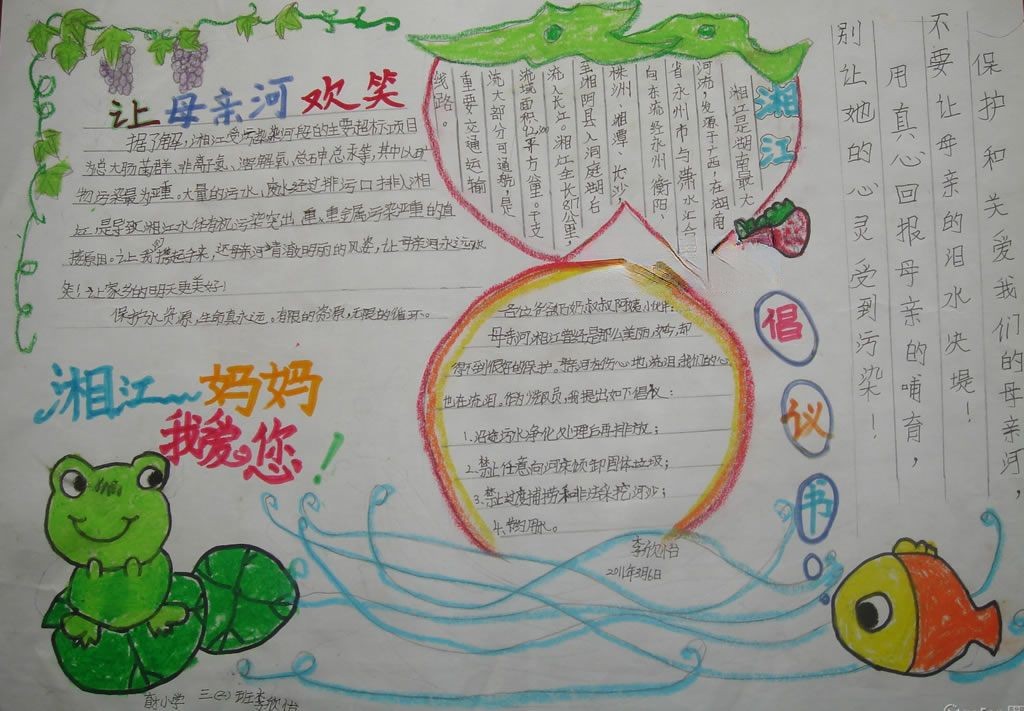 让母亲河欢笑
据了解，湘江受污染河段的主要超标项目
为总大肠菌群、非离子氨、溶解氧、总砷总汞等，其中以矿
物污染最为严重。大量的污水、废水经过排污口排入湘
江，是导致湘江水体有机污染突出、重金属污染严重的直
接原因。让我们携起手来，还母亲河清澈明丽的风姿，让母亲河永远欢
笑！让家乡的明天更美好！
保护水资源，生命真永远。有限的资源，无限的循环。
湘江
湘江是湖南最大
河流，发源于广西，在湖南
省永州市与萧水汇合
向东流经永州、衡阳、
株洲、湘潭、长沙，
至湘阴县入洞庭湖后
流入长江。湘江全长817公里，
流域面积92300平方公里。干支
流大部分可通航，是
重要交通运输
线路。
保护和关爱我们的母亲河，
不要让母亲的泪水决堤！
用真心回报母亲的哺育，
别让她的心灵受到污染！
湘江~妈妈
我爱您！
倡议书
各位爷爷奶奶叔叔阿姨小伙伴：
母亲河湘江曾经是那么美丽，如今，却
得不到很好的保护。母亲河在伤心地流泪，我们的心
也在流泪。作为少先队员，我提出如下倡议：
1.沿途污水净化处理后再排放；
2.禁止任意向河床倾卸固体垃圾；
3.禁止过度捕捞和非法采挖河沙；
4.节约用水。
李欣怡
2011年3月6日
小学 三(2)班李欣怡